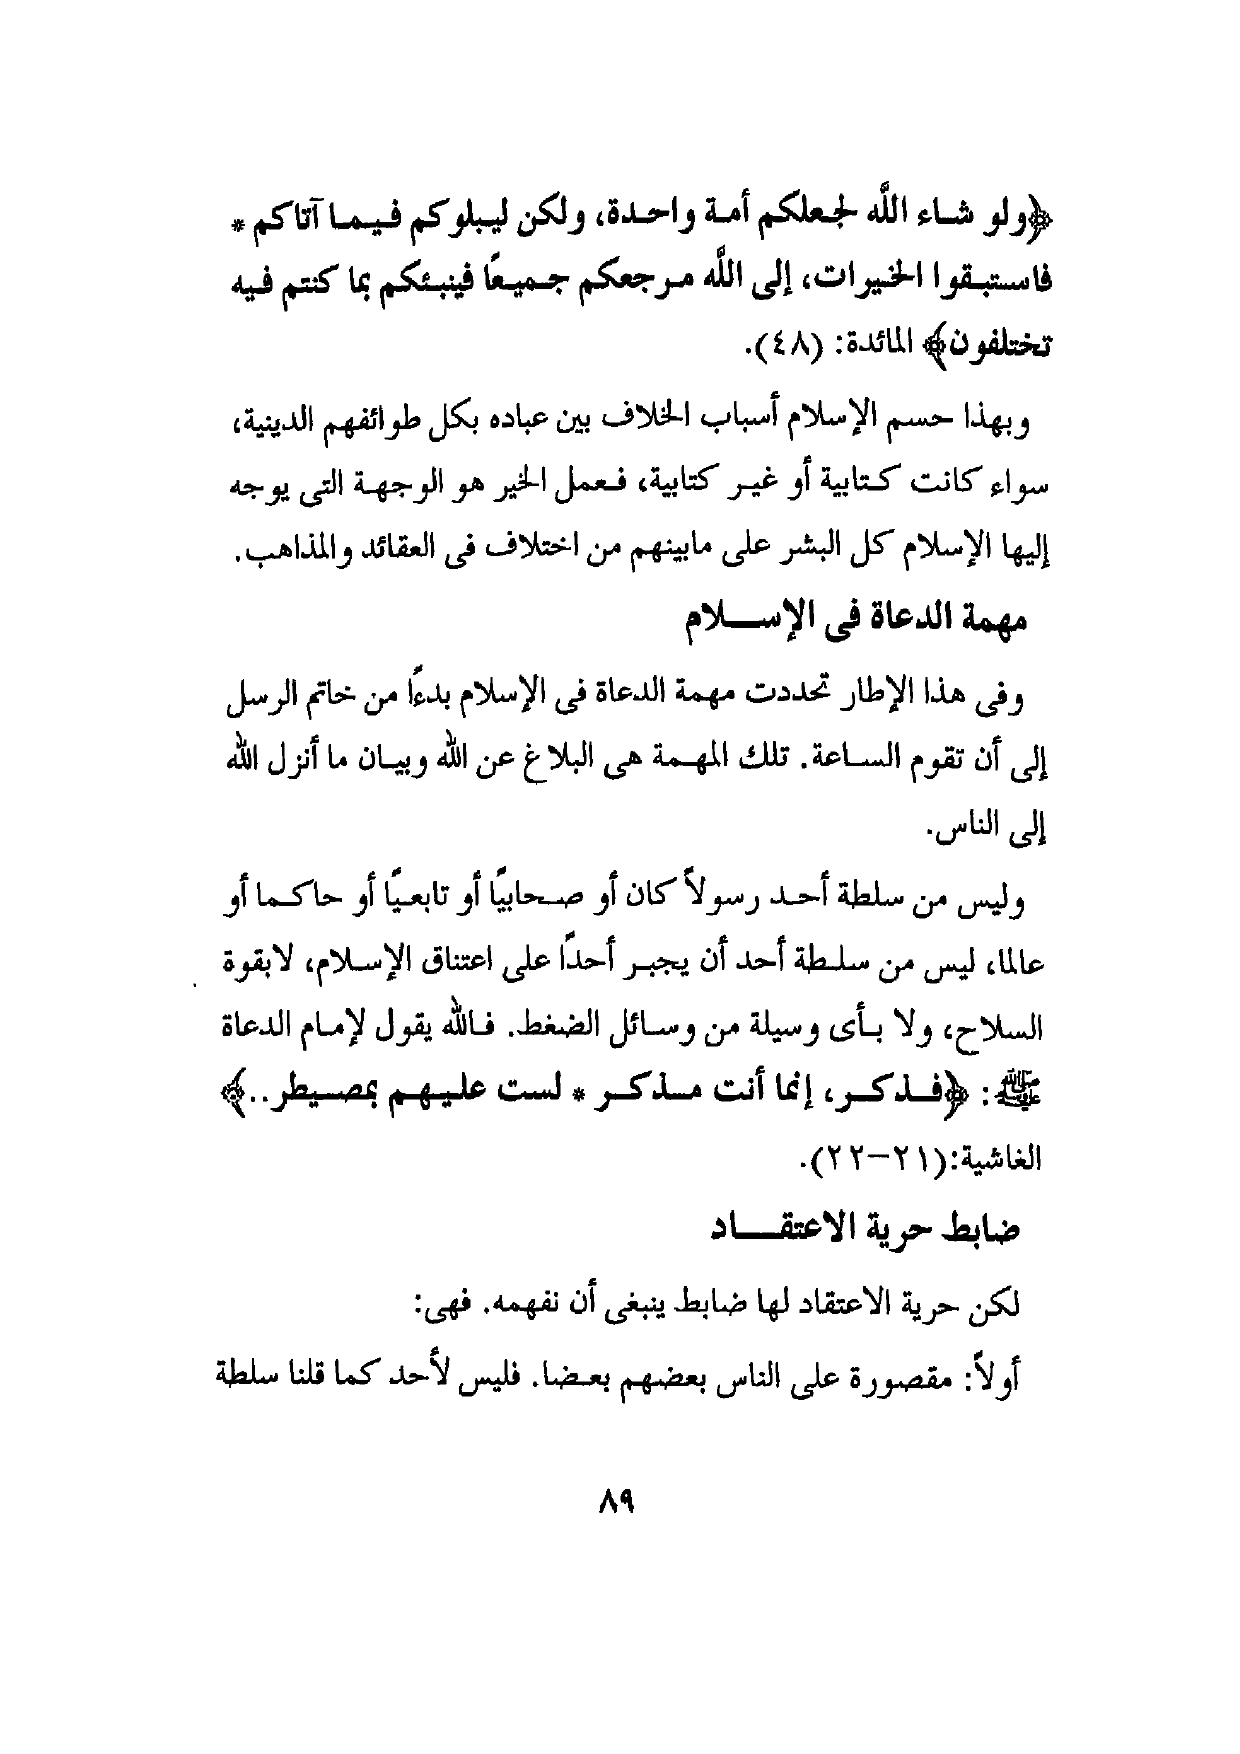 ﴿ولو شاء اللَّه لجعلكم أمة واحدة، ولكن ليبلوكم فيما آتاكم *
فاستبقوا الخيرات، إلى اللَّه مرجعكم جميعًا فينبئكم بما كنتم فيه
تختلفون﴾ المائدة: (٤٨).
وبهذا حسم الإسلام أسباب الخلاف بين عباده بكل طوائفهم الدينية،
سواء كانت كتابية أو غير كتابية، فعمل الخير هو الوجهة التى يوجه
إليها الإسلام كل البشر على مابينهم من اختلاف فى العقائد والمذاهب.
مهمة الدعاة فى الإسـلام
وفى هذا الإطار تحددت مهمة الدعاة فى الإسلام بدءًا من خاتم الرسل
إلى أن تقوم الساعة. تلك المهمة هى البلاغ عن الله وبيان ما أنزل الله
إلى الناس.
وليس من سلطة أحد رسولاً كان أو صحابيًا أو تابعيًا أو حاكما أو
عالما، ليس من سلطة أحد أن يجبر أحدًا على اعتناق الإسلام، لابقوة
السلاح، ولا بأى وسيلة من وسائل الضغط. فالله يقول لإمام الدعاة
ﷺ: ﴿فذكر، إنما أنت مذكر * لست عليهم بمصيطر..﴾
الغاشية:(٢١-٢٢).
ضابط حرية الاعتقـاد
لكن حرية الاعتقاد لها ضابط ينبغى أن نفهمه. فهى:
أولاً: مقصورة على الناس بعضهم بعضا. فليس لأحد كما قلنا سلطة
٨٩